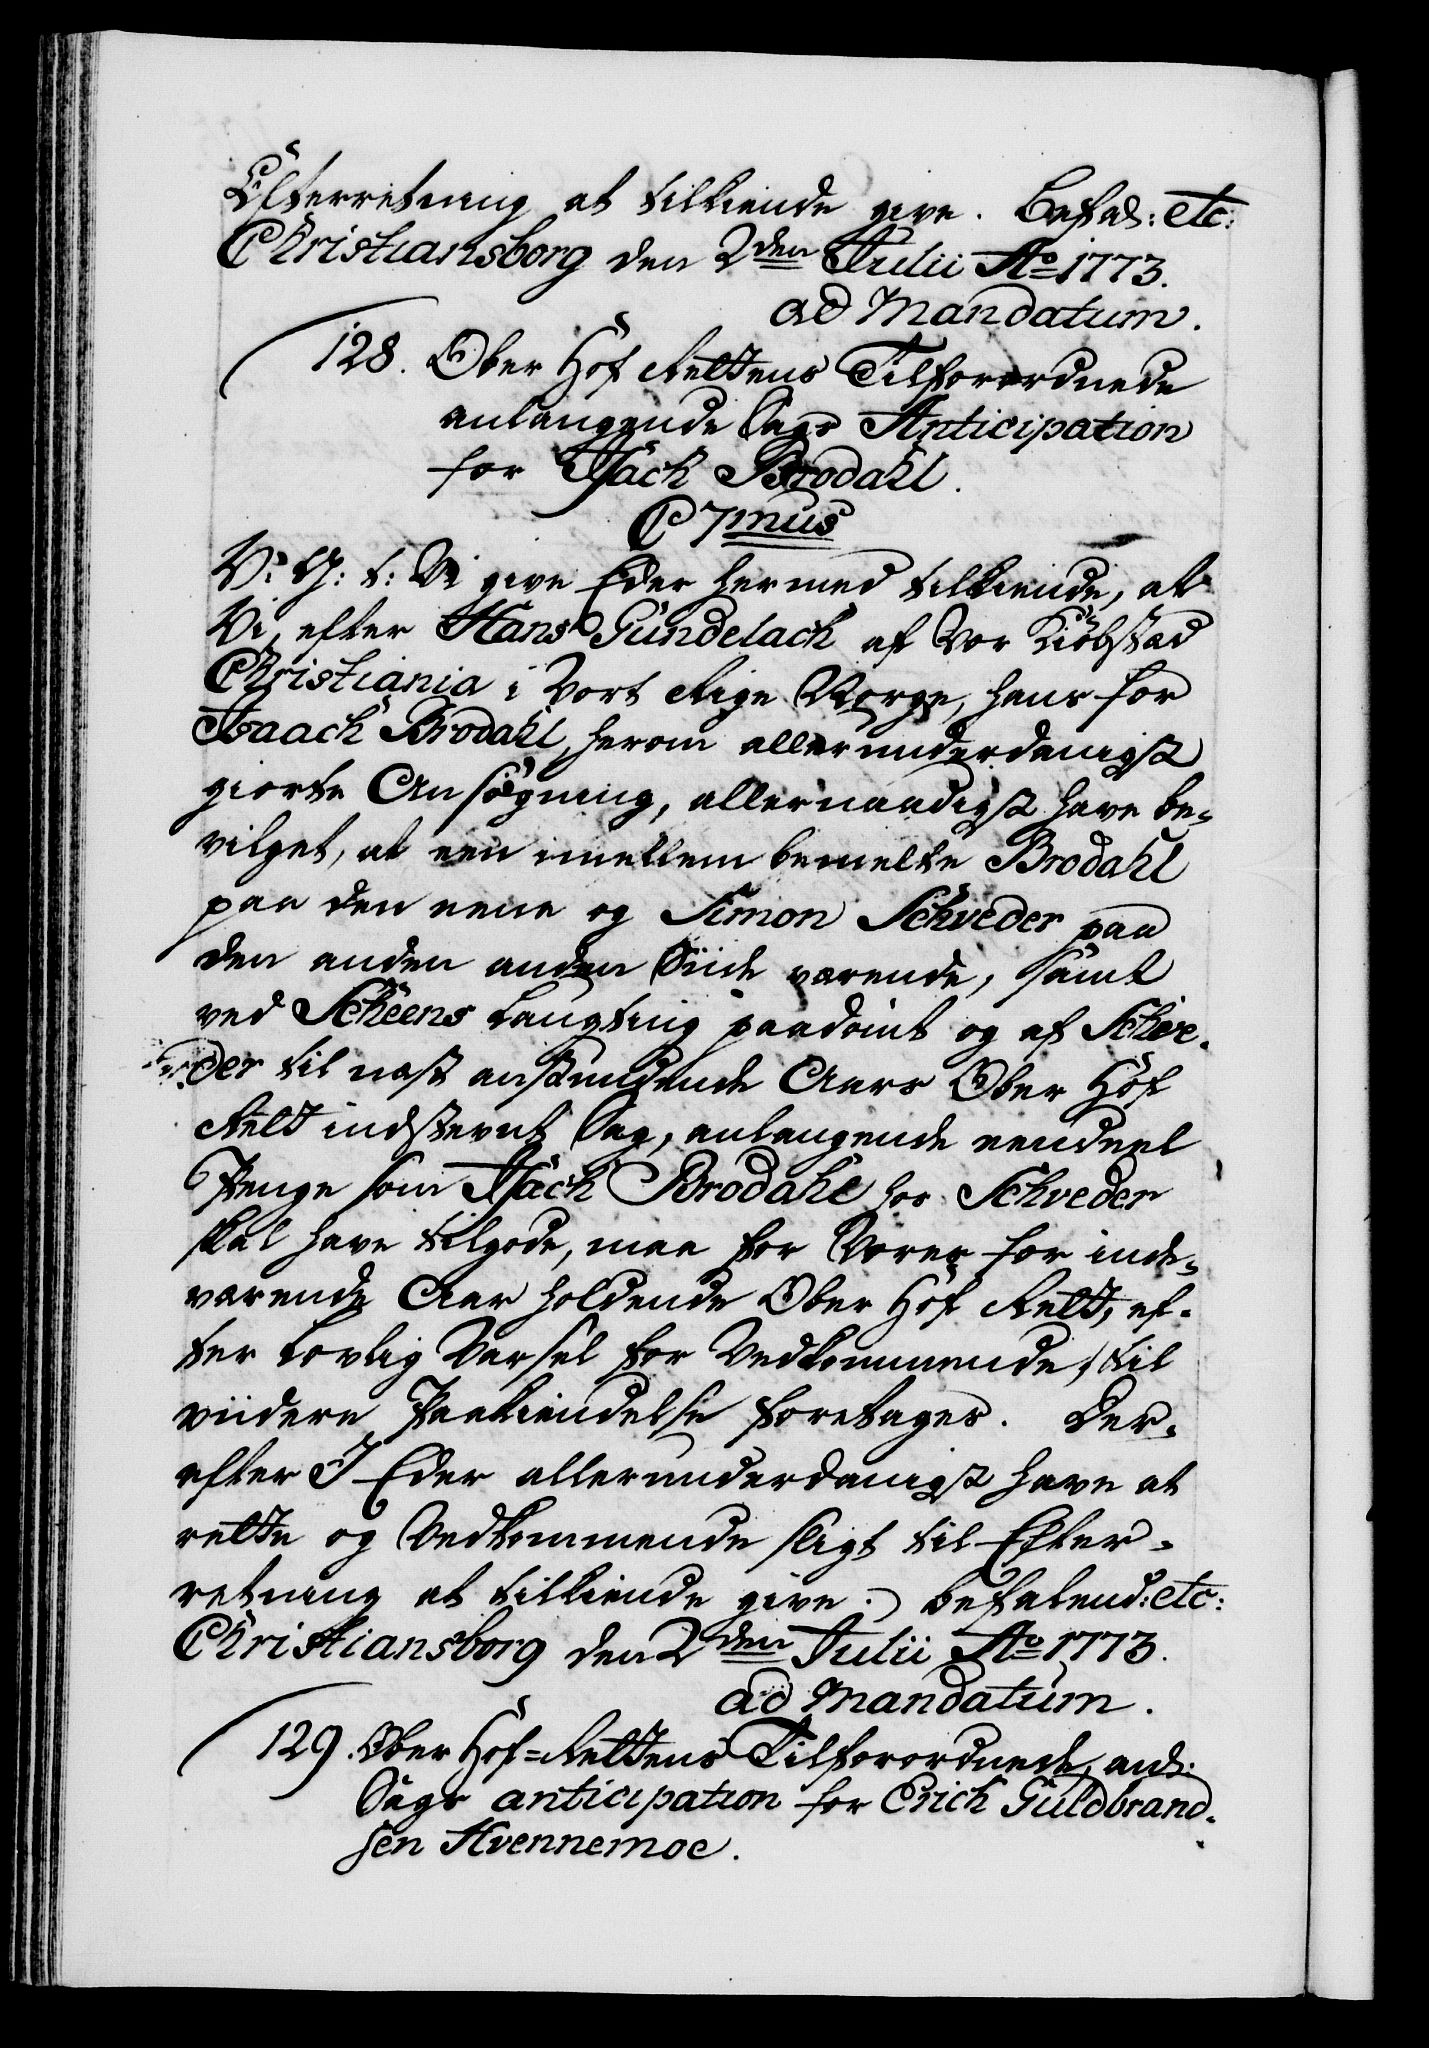 Efterretning at tilkiende give. Befal: etc:
Christiansborg den 2den Julii Ao 1773.
ad Mandatum.
128. Ober Hof Rettens Tilforordnede
anlangende Sags Anticipation
for Isach Brodahl.
C 7mus
V: G: t: Vi give Eder hermed tilkiende, at
Vi, efter Hans Gundelach af Vor Kiøbstad
Christiania i Vort Rige Norge, hans for
Isaach Brodahl, herom allerunderdanigst
giorte Ansøgning, allernaadigst have be-
vilget, at een imellem bemelte Brodahl
paa den eene og Simon Schveder paa
den anden anden Siide værende, samt
ved Scheens Laugting paadømt og af Schve-
der til næst anstundende Aars Ober Hof
Rett indstevnt Sag, anlangende eendeel
Penge som Isach Brodahl hos Schveder
skal have tilgode, maa for Vores for inde-
værende Aar holdende Ober Hof Rett, ef-
ter Lovlig Varsel for Vedkommende, til
viidere Paakiendelse foretages. Der-
efter I Eder allerunderdanigst have at
rette og Vedkommende sligt til Efter-
retning at tilkiende give. befalend: etc:
Christiansborg den 2den Julii Ao 1773.
ad Mandatum.
129. Ober Hof=Rettens Tilforordnede, anl:
Sags anticipation for Erich Guldbrand-
sen Hvennemoe.